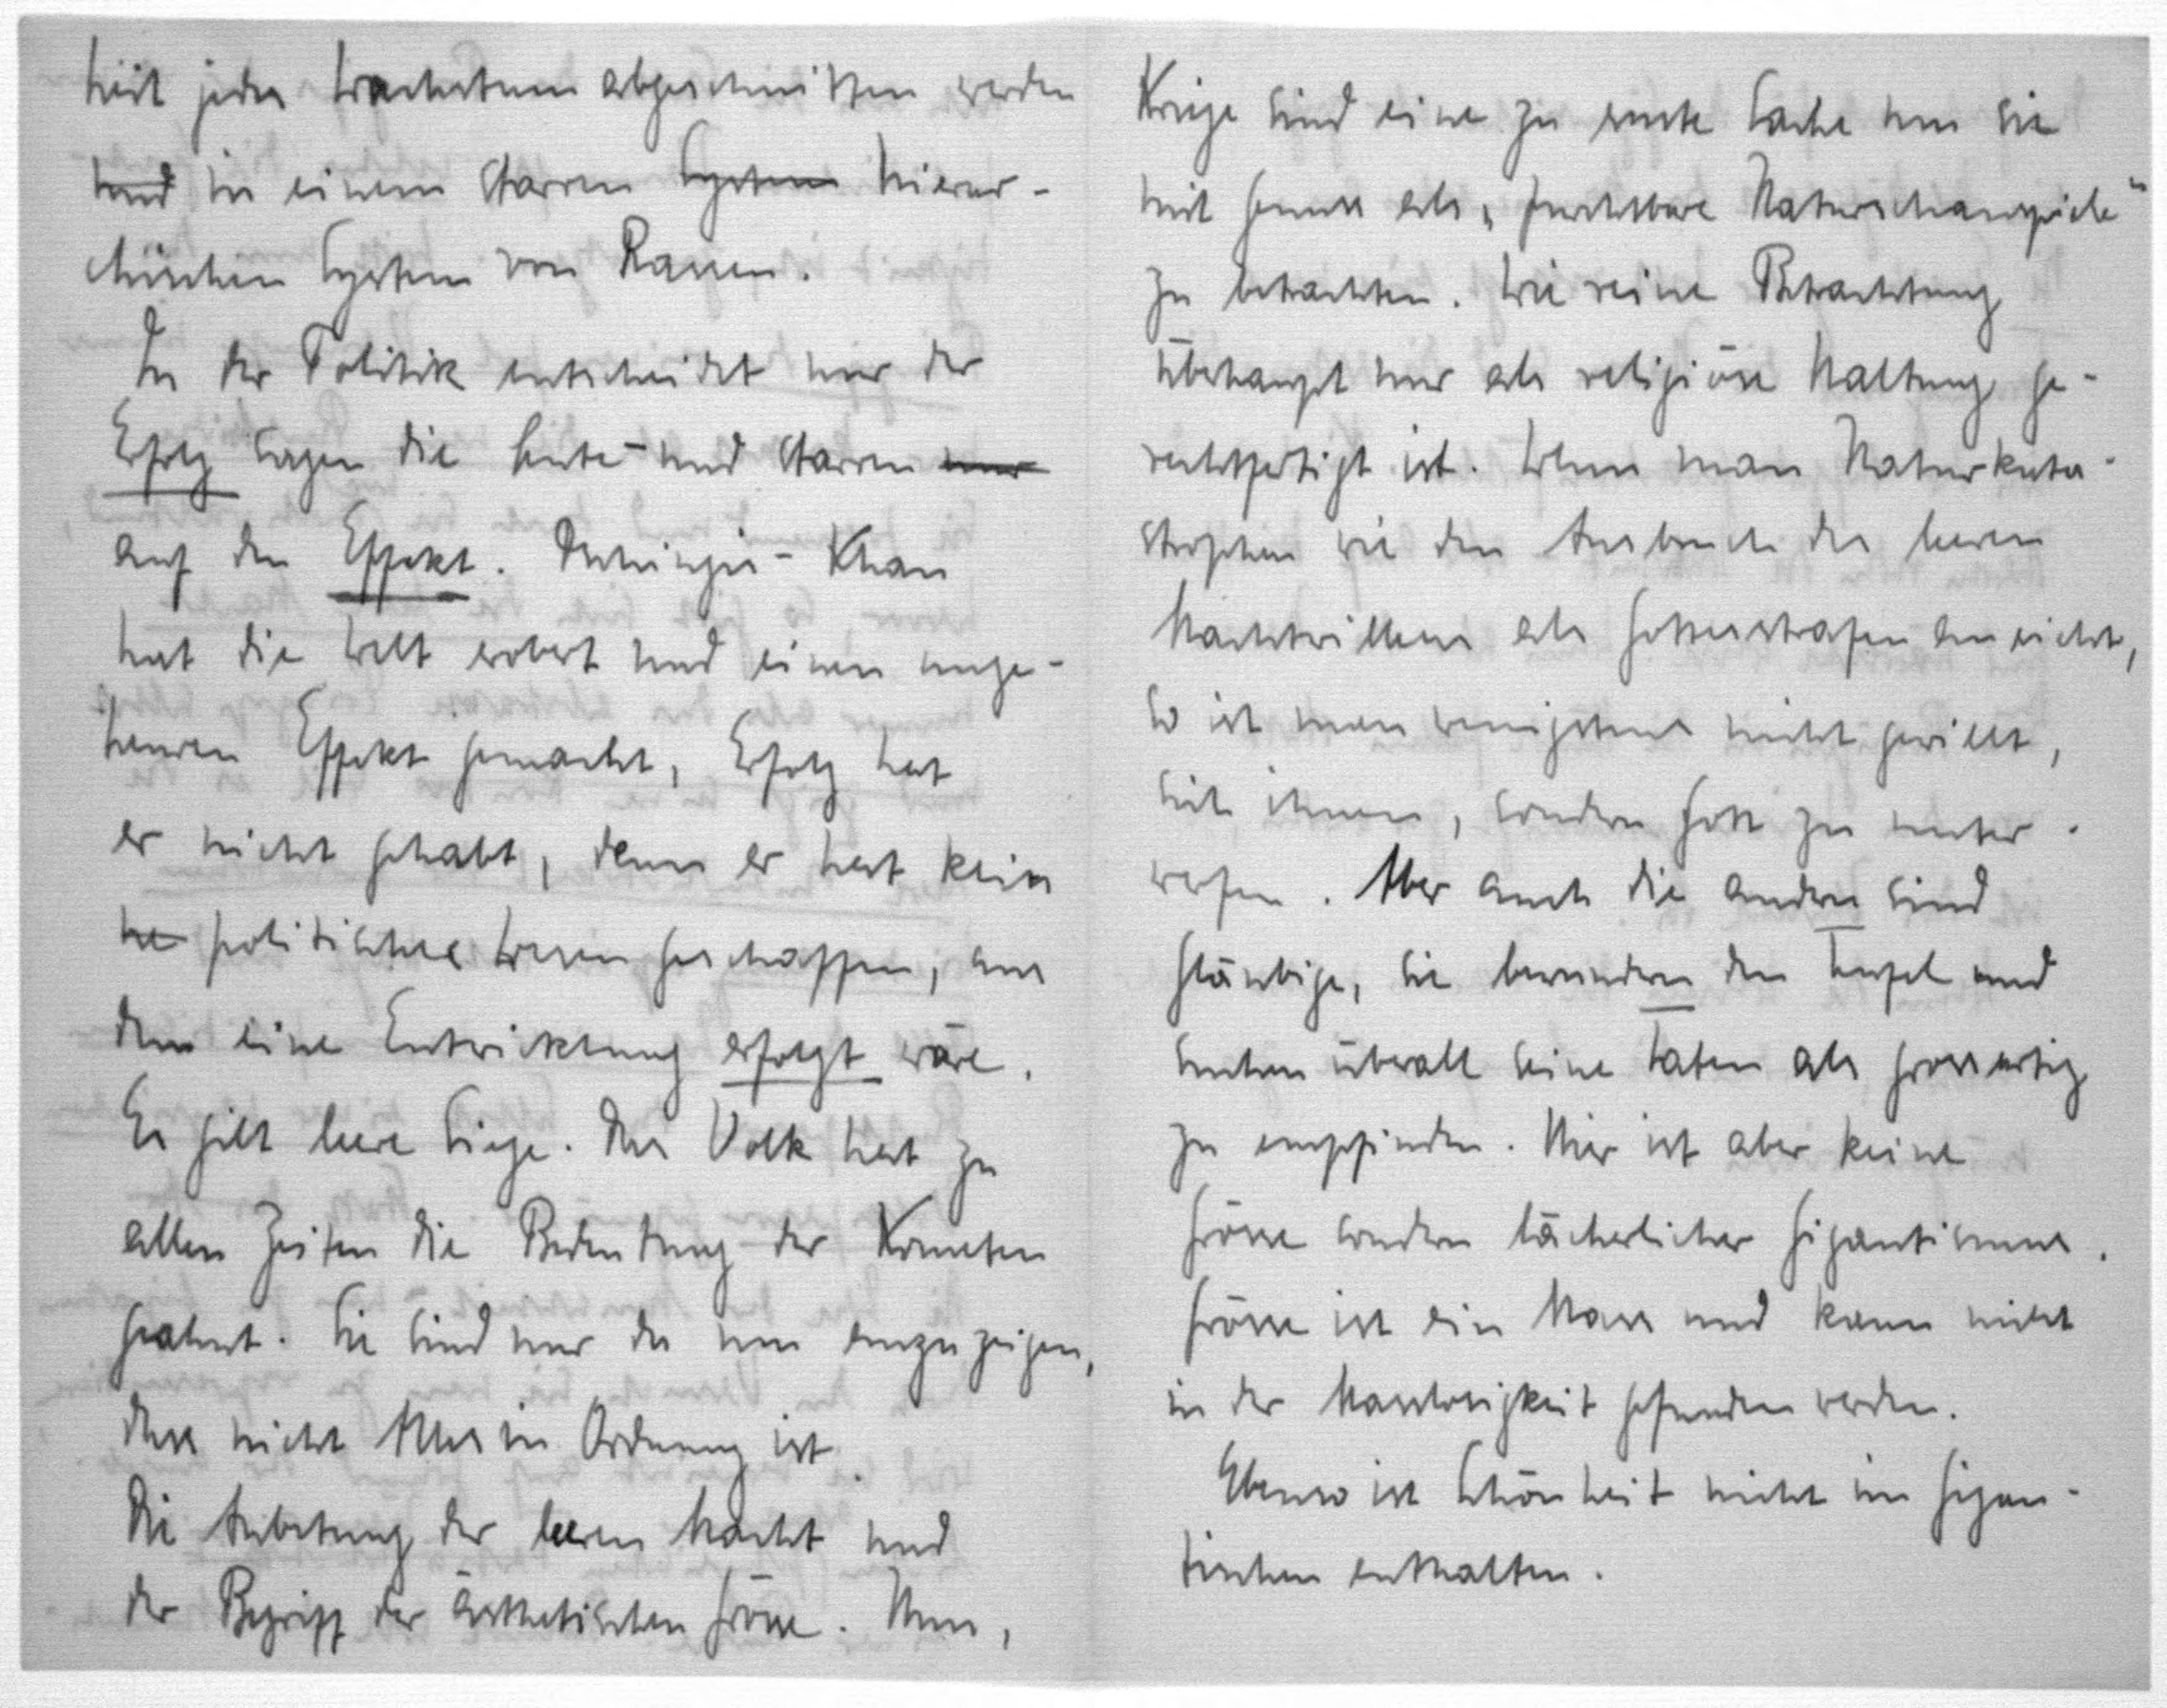 mit jedes Wachstum abgeschnitten werden
und in einem starren System hierar-
chischen System von Rassen.
In der Politik entscheidet nur der
Erfolg sagen die Leute und starren nur
auf den Effekt. Dschingis-Khan
hat die Welt erobert und einen unge-
heuren Effekt gemacht, Erfolg hat
er nicht gehabt, denn er hat kein
ne politisches Wesen geschaffen, aus
dem eine Entwicklung erfolgt wäre.
Es gibt leere Siege. Das Volk hat zu
allen Zeiten die Bedeutung der Kometen
geahnt. Sie sind nur da um anzuzeigen,
dass nicht Alles in Ordnung ist.
Die Anbetung der leeren Macht und
der Begriff der ästhetischen Grösse. Nun,
Kriege sind eine zu ernste Sache um sie
mit Genuss als „furchtbare Naturschauspiele“
zu betrachten. Wie reine Betrachtung
überhaupt nur als religiöse Haltung ge-
rechtfertigt ist. Wenn man Naturkata-
strophen wie den Ausbruch des leeren
Machtwillens als Gottesstrafen ansieht,
so ist man wenigstens nicht gewillt,
sich ihnen, sondern Gott zu unter-
werfen. Aber auch die andren sind
Gläubige, sie bewundern den Teufel und
suchen überall seine Taten als grossartig
zu empfinden. Hier ist aber keine
Grösse sondern lächerlicher Gigantismus.
Grösse ist ein Mass und kann nicht
in der Masslosigkeit gefunden werden.
Ebenso ist Schönheit nicht im Gigan-
tischen enthalten.